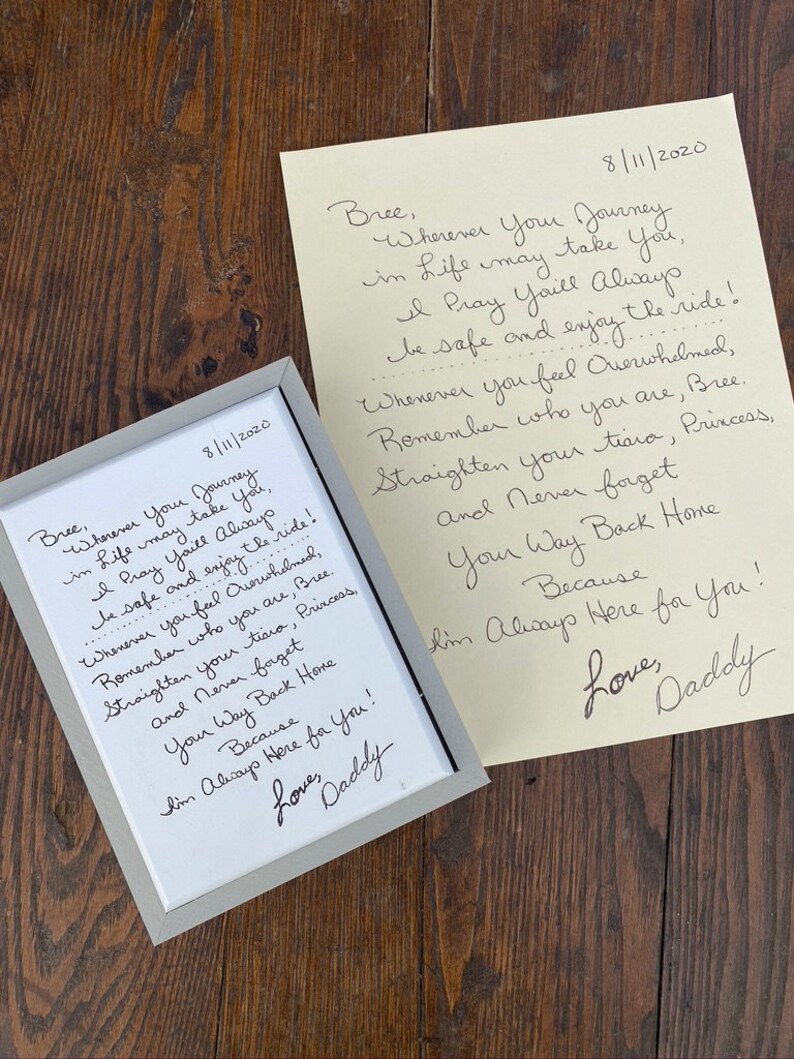 8/11/2020
Bree,
Wherever Your Journey
in Life may take You,
I Pray You'll Always
be safe and enjoy the ride!
Whenever you feel Overwhelmed,
Remember who you are, Bree.
Straighten your tiara, Princess,
and Never forget
Your Way Back Home
Because
I'm Always Here for You!
Love,
Daddy
8/11/2020
Bree,
Wherever Your Journey
in Life may take You,
I Pray You'll Always
be safe and enjoy the ride!
Whenever you feel Overwhelmed,
Remember who you are, Bree.
Straighten your tiara, Princess,
and Never forget
Your Way Back Home
Because
I'm Always Here for You!
Love,
Daddy